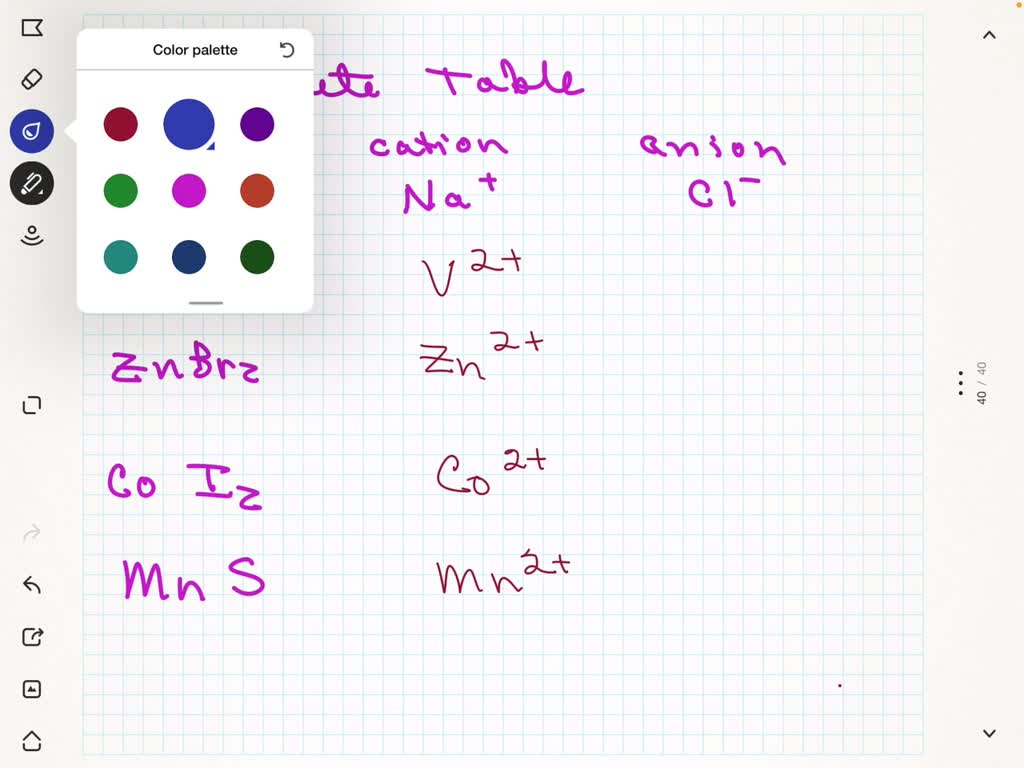 Color palette
ete Table
cation anion
Na+ Cl−
V 2+
ZnBr2 Zn 2+
Co I2 Co 2+
Mn S Mn 2+
40 / 40